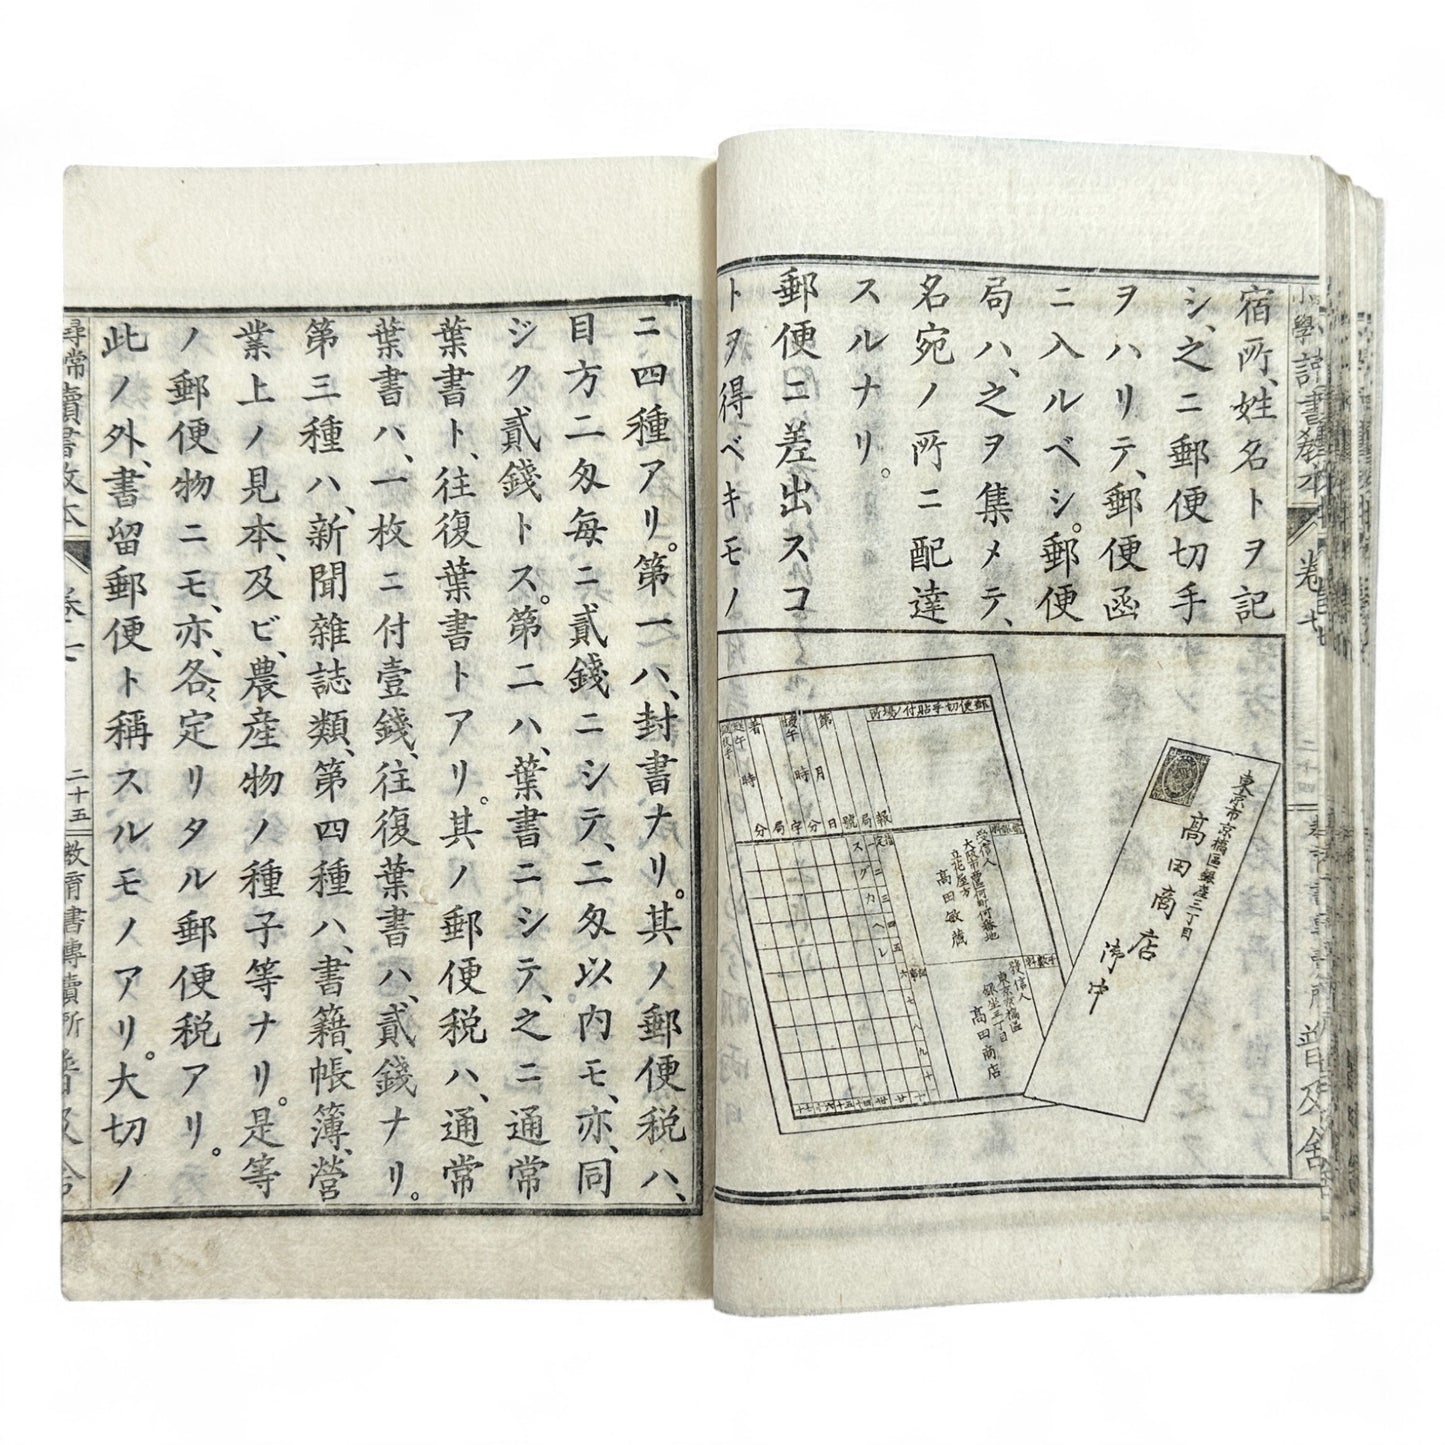 宿所、姓名トヲ記
シ、之ニ郵便切手
ヲハリテ、郵便函
ニ入ルベシ。郵便
局ハ、之ヲ集メテ、
名宛ノ所ニ配達
スルナリ。
郵便ニ差出スコ
トヲ得ベキモノ
郵便切手貼付ノ場所
東京市京橋區銀座三丁目
高田商店
御中
受信人
大阪市西區何町何番地
立花屋方
高田敏藏
發信人
東京京橋區
銀坐三丁目
高田商店
ニ四種アリ。第一ハ、封書ナリ。其ノ郵便税ハ、
目方二匁每ニ貳錢ニシテ、二匁以内モ、亦、同
ジク貳錢トス。第二ハ、葉書ニシテ、之ニ通常
葉書ト、往復葉書トアリ。其ノ郵便税ハ、通常
葉書ハ、一枚ニ付壹錢、往復葉書ハ、貳錢ナリ。
第三種ハ、新聞雜誌類、第四種ハ、書籍、帳簿、營
業上ノ見本、及ビ、農産物ノ種子等ナリ。是等
ノ郵便物ニモ、亦、各、定リタル郵便税アリ。
此ノ外、書留郵便ト稱スルモノアリ。大切ノ
尋常讀書教本 卷七 二十五 教育書專賣所 普及舍